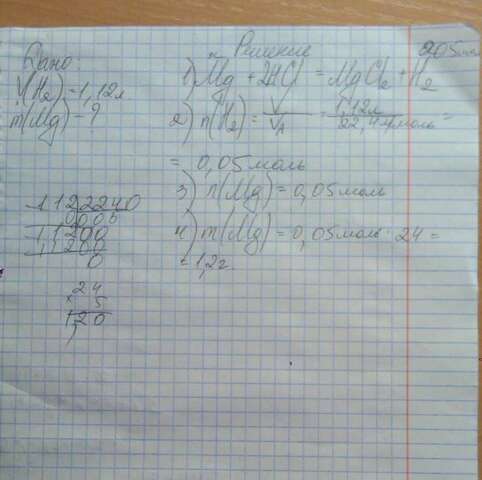 Дано:
V(H₂) = 1,12л
m(Mg) - ?
Решение
1) Mg + 2HCl = MgCl₂ + H₂
2) n(H₂) = V/V_A = 1,12л/22,4л/моль =
= 0,05 моль
3) n(Mg) = 0,05 моль
4) m(Mg) = 0,05 моль · 24 =
= 1,2г.
11200
11200
0
× 24
5
1,20